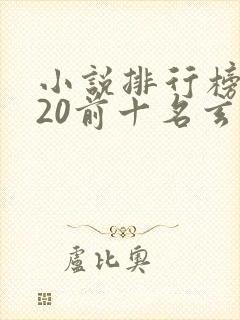 小說排行榜
20前十名玄
盧比奧